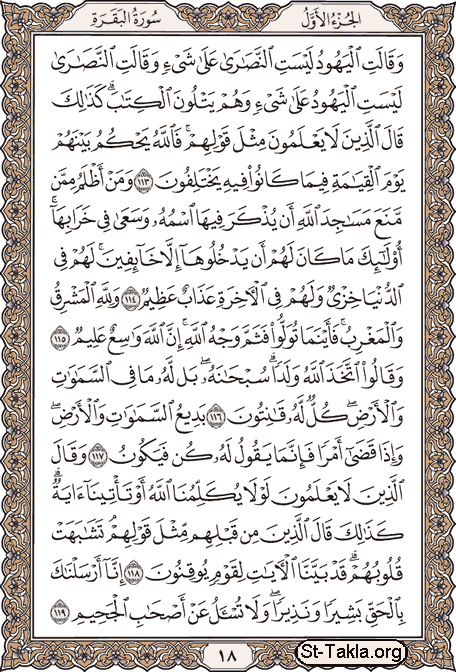 الجُزءُ الأَوَّلُ
سُورَةُ البَقَرَةِ
وَقَالَتِ ٱلۡيَهُودُ لَيۡسَتِ ٱلنَّصَٰرَىٰ عَلَىٰ شَيۡءٖ وَقَالَتِ ٱلنَّصَٰرَىٰ
لَيۡسَتِ ٱلۡيَهُودُ عَلَىٰ شَيۡءٖ وَهُمۡ يَتۡلُونَ ٱلۡكِتَٰبَۗ كَذَٰلِكَ
قَالَ ٱلَّذِينَ لَا يَعۡلَمُونَ مِثۡلَ قَوۡلِهِمۡۚ فَٱللَّهُ يَحۡكُمُ بَيۡنَهُمۡ
يَوۡمَ ٱلۡقِيَٰمَةِ فِيمَا كَانُواْ فِيهِ يَخۡتَلِفُونَ ١١٣ وَمَنۡ أَظۡلَمُ مِمَّن
مَّنَعَ مَسَٰجِدَ ٱللَّهِ أَن يُذۡكَرَ فِيهَا ٱسۡمُهُۥ وَسَعَىٰ فِي خَرَابِهَآۚ
أُوْلَٰٓئِكَ مَا كَانَ لَهُمۡ أَن يَدۡخُلُوهَآ إِلَّا خَآئِفِينَۚ لَهُمۡ فِي
ٱلدُّنۡيَا خِزۡيٞ وَلَهُمۡ فِي ٱلۡأٓخِرَةِ عَذَابٌ عَظِيمٞ ١١٤ وَلِلَّهِ ٱلۡمَشۡرِقُ
وَٱلۡمَغۡرِبُۚ فَأَيۡنَمَا تُوَلُّواْ فَثَمَّ وَجۡهُ ٱللَّهِۚ إِنَّ ٱللَّهَ وَٰسِعٌ عَلِيمٞ ١١٥
وَقَالُواْ ٱتَّخَذَ ٱللَّهُ وَلَدٗاۗ سُبۡحَٰنَهُۥۖ بَل لَّهُۥ مَا فِي ٱلسَّمَٰوَٰتِ
وَٱلۡأَرۡضِۖ كُلّٞ لَّهُۥ قَٰنِتُونَ ١١٦ بَدِيعُ ٱلسَّمَٰوَٰتِ وَٱلۡأَرۡضِۖ
وَإِذَا قَضَىٰٓ أَمۡرٗا فَإِنَّمَا يَقُولُ لَهُۥ كُن فَيَكُونُ ١١٧ وَقَالَ
ٱلَّذِينَ لَا يَعۡلَمُونَ لَوۡلَا يُكَلِّمُنَا ٱللَّهُ أَوۡ تَأۡتِينَآ ءَايَةٞۗ
كَذَٰلِكَ قَالَ ٱلَّذِينَ مِن قَبۡلِهِم مِّثۡلَ قَوۡلِهِمۡۘ تَشَٰبَهَتۡ
قُلُوبُهُمۡۗ قَدۡ بَيَّنَّا ٱلۡأٓيَٰتِ لِقَوۡمٖ يُوقِنُونَ ١١٨ إِنَّآ أَرۡسَلۡنَٰكَ
بِٱلۡحَقِّ بَشِيرٗا وَنَذِيرٗاۖ وَلَا تُسۡـَٔلُ عَنۡ أَصۡحَٰبِ ٱلۡجَحِيمِ ١١٩
١٨
St-Takla.org